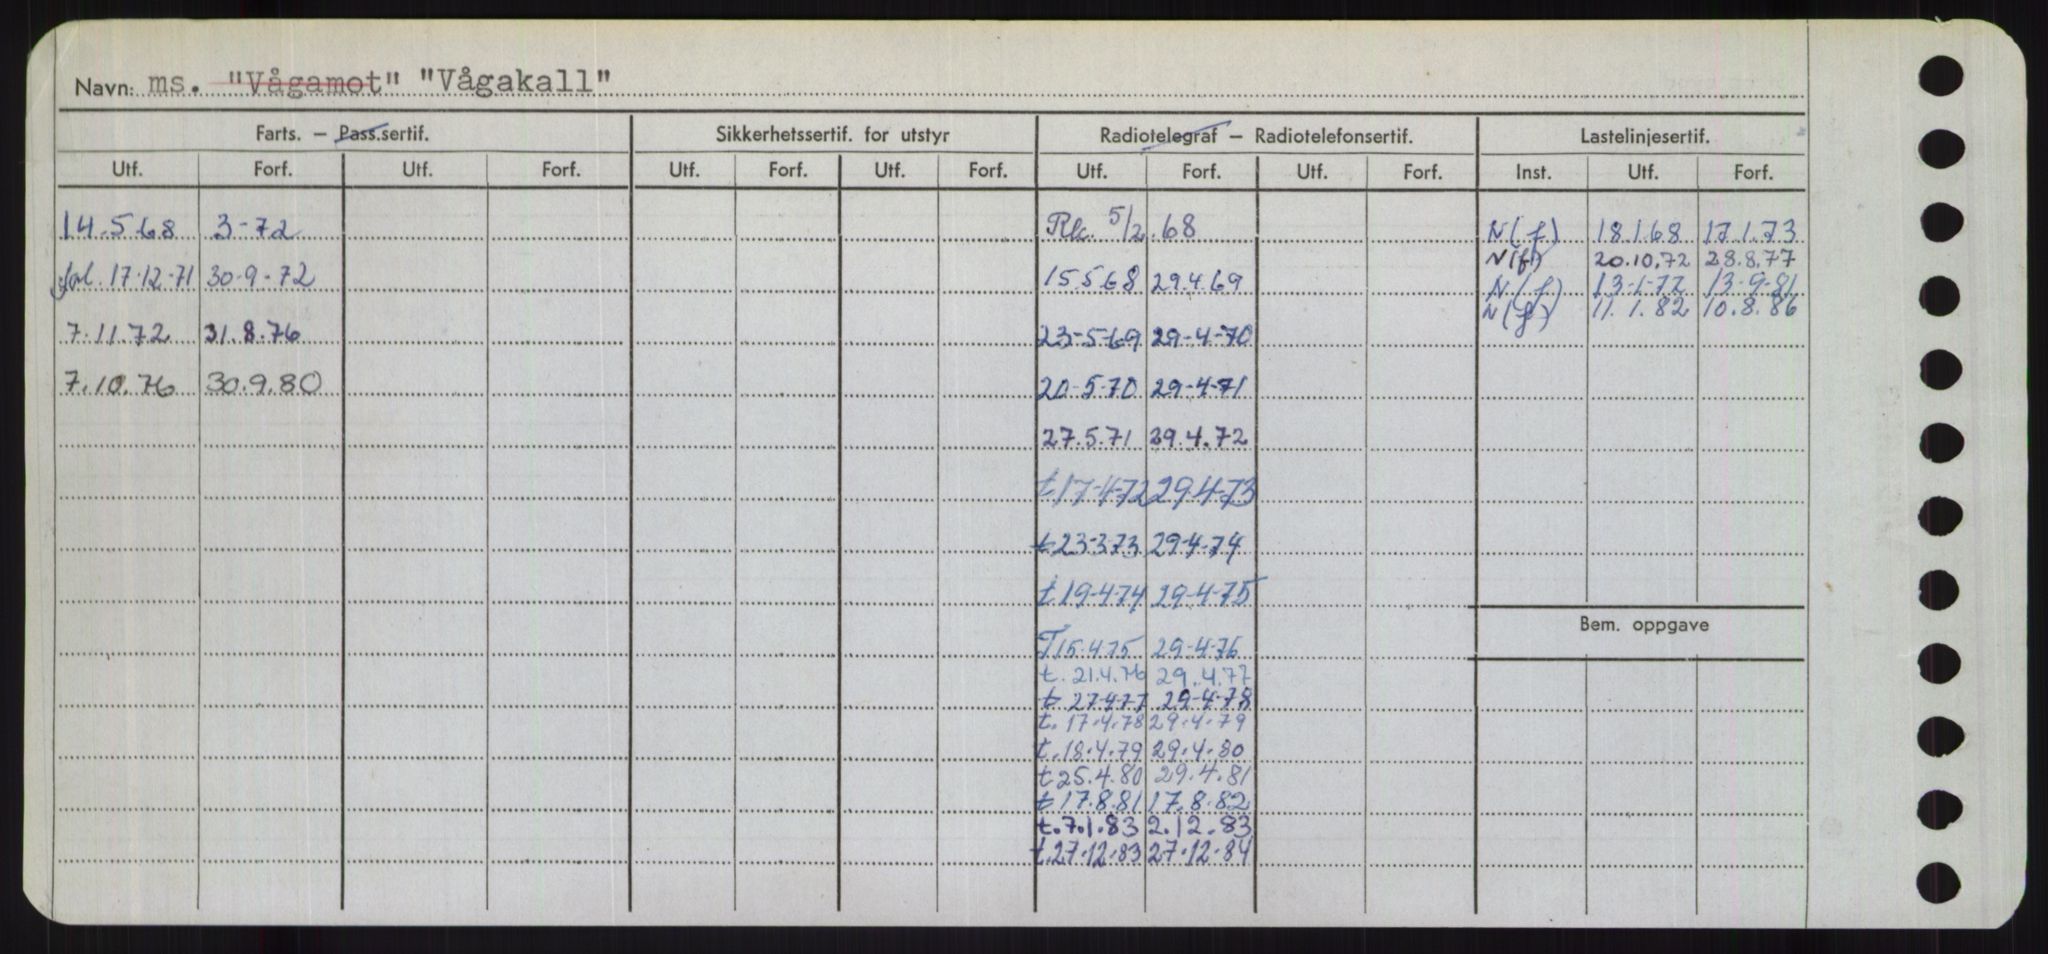 Navn: ms. "Vågamot" "Vågakall"
Farts. — Pass.sertif. Sikkerhetssertif. for utstyr Radiotelegraf — Radiotelefonsertif. Lastelinjesertif.
Utf. Forf. Utf. Forf. Utf. Forf. Utf. Forf. Utf. Forf. Utf. Forf. Inst. Utf. Forf.
14.5.68 3-72 5/2.68 N(f) 18.1.68 17.1.73
N(f) 20.10.72 28.8.77
17-12-71 30-9-72 15.5.68 29.4.69 N(f) 13-9-81
N(f) 11.1.82 10.8.86
7.11.72 31.8.76 23-5-69 29-4-70
7.10.76 30.9.80 20-5-70 29-4-71
27.5.71 29.4.72
t 17-4-72 29-4-73
t 23-3-73 29-4-74
t 19-4-74 29-4-75
Bem. oppgave
T 15-4-75 29-4-76
t. 21.4.76 29.4.77
t 27-4-77 29-4-78
t. 17.4.78 29.4.79
t. 18.4.79 29.4.80
t 25.4.80 29.4.81
t 17.8.81 17.8.82
t. 7.1.83 2.12.83
t. 27.12.83 27.12.84